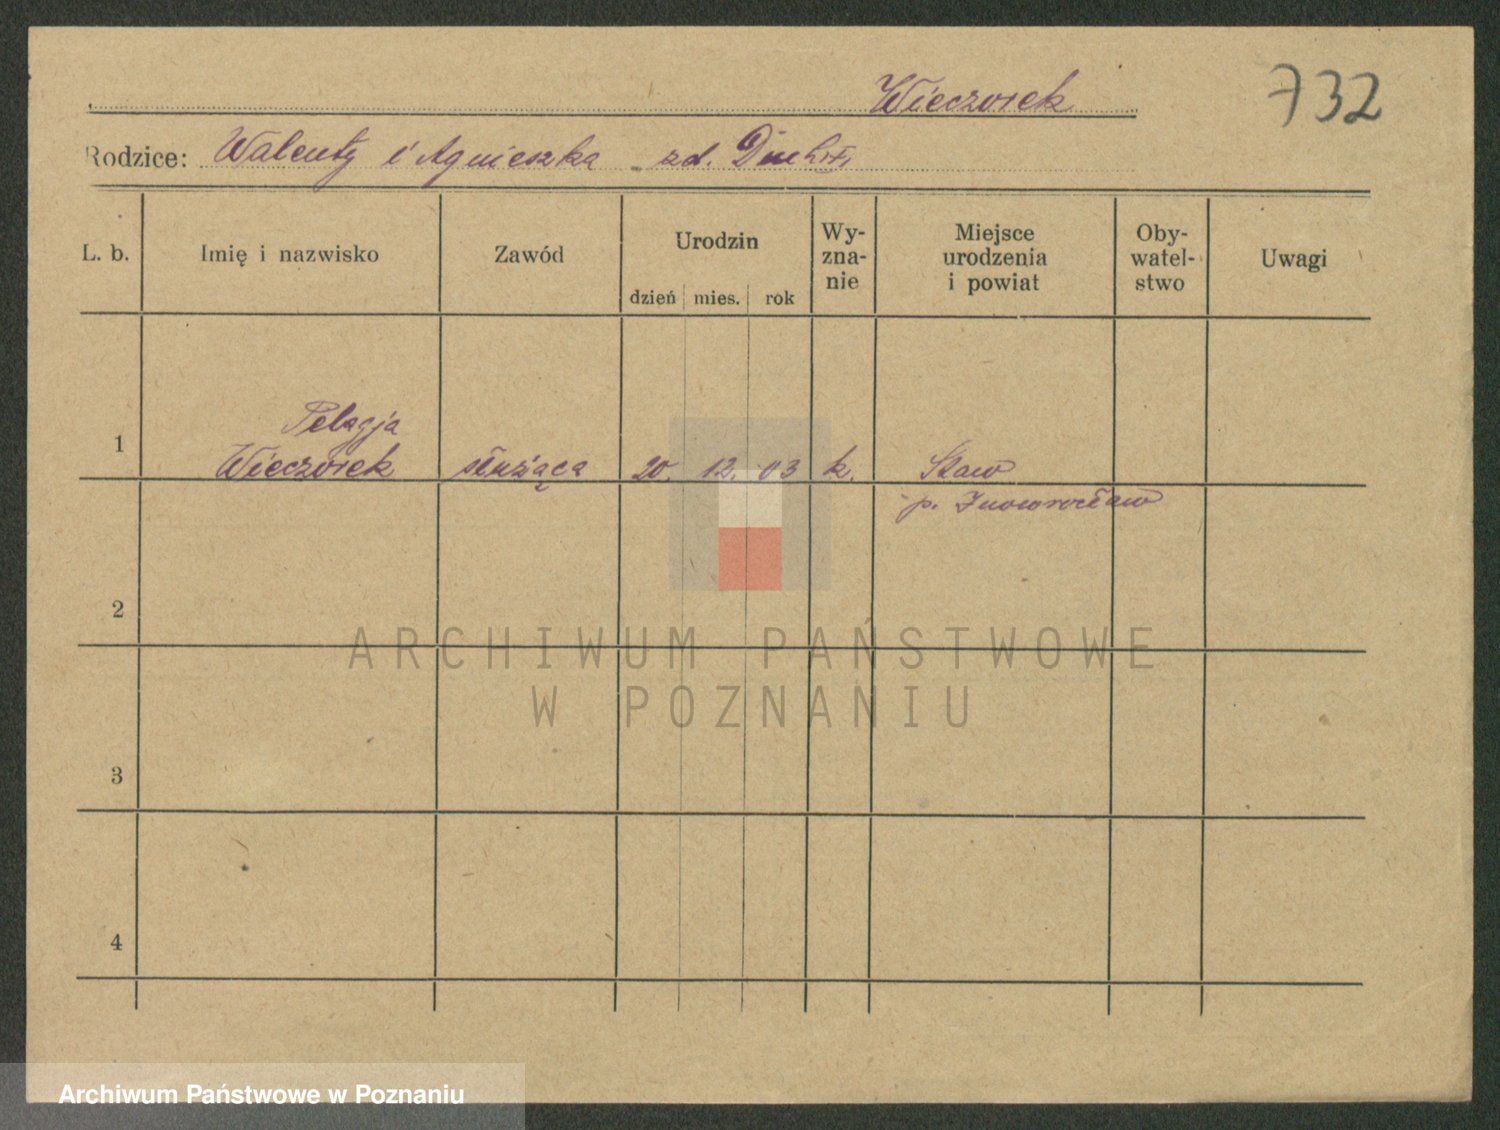 Wieczorek
732
Rodzice: Walenty i Agnieszka zd.
L. b.
Imię i nazwisko
Zawód
Urodzin
dzień mies. rok
Wy-
zna-
nie
Miejsce
urodzenia
i powiat
Oby-
watel-
stwo
Uwagi
1
Pelagja
Wieczorek
służąca
20. 12. 03
k.
Staw
p. Inowrocław
2
3
4
ARCHIWUM PAŃSTWOWE
W POZNANIU
Archiwum Państwowe w Poznaniu